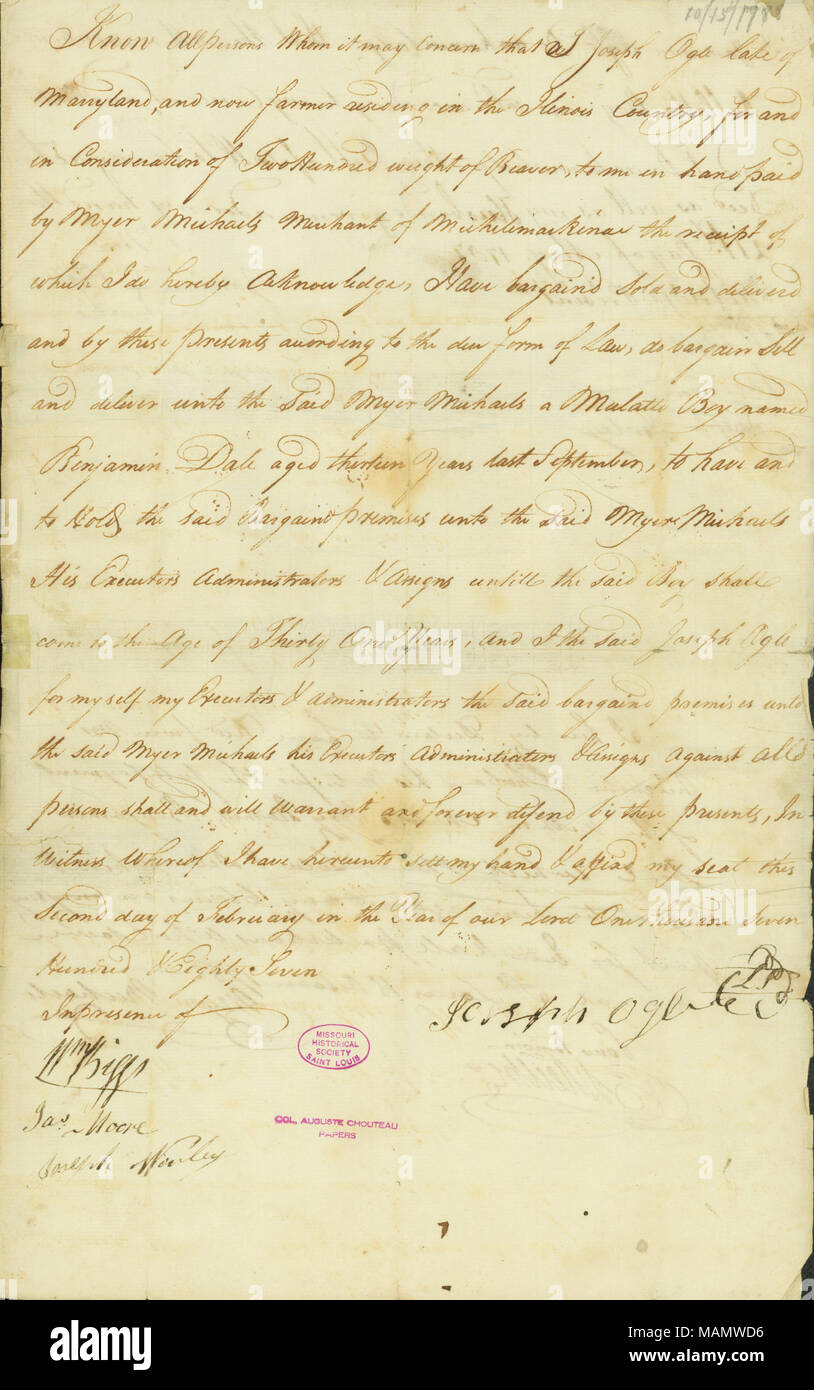 10/15/178
Know All persons Whom it may Concern that I Joseph Ogle late of
Marryland, and now farmer residing in the Ilinois Country, for and
in Consideration of Two Hundred weight of Beaver, to me in hand paid
by Myer Michaels Merchant of Michilimackinac the receipt of
which I do hereby Aknowledge, Have bargain'd Sold and deliverd
and by these presents acording to the due form of Law, do bargain Sell
and deliver unto the Said Myer Michaels a Mulatto Boy named
Benjamin Dale aged thirteen Years last September, to have and
to Hold the said Bargaind premises unto the Said Myer Michaels
His Executors Administrators & Assigns untill the said Boy shall
come to the Age of Thirty One Years, and I the said Joseph Ogle
for my self my Executors & administrators the said bargaind premises unto
the said Myer Michaels his Executors Administrators & Assigns against all
persons shall and will warrant and forever defend by these presents, In
Witness Whereof I have hereunto sett my hand & affixd my seal this
Second day of February in the Year of our Lord One thousand Seven
Hundred & Eighty Seven
In presence of
Joseph Ogle
Wm Biggs
Jas Moore
Joseph Worley
MISSOURI
HISTORICAL
SOCIETY
SAINT LOUIS
COL. AUGUSTE CHOUTEAU
PAPERS
alamy
Image ID: MAMWD6
www.alamy.com